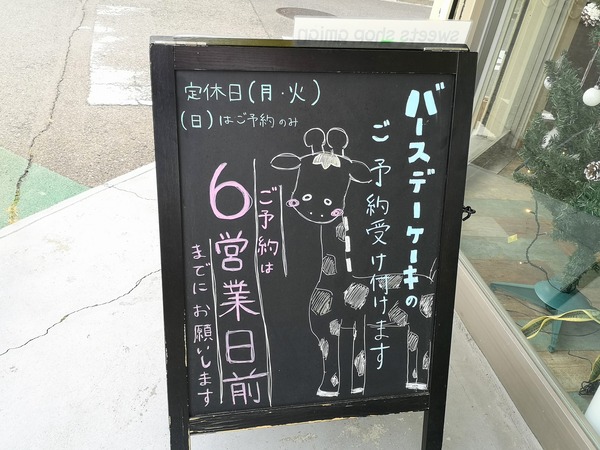 sweets shop amian
定休日(月・火)
(日)はご予約のみ
バースデーケーキの
ご予約受け付けます
ご予約は
6営業日前
までにお願いします